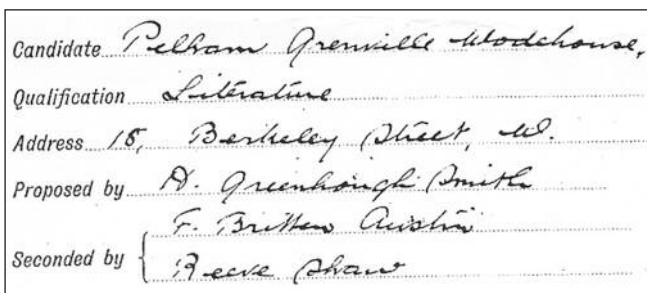 Candidate Pelham Grenville Wodehouse,
Qualification Literature
Address 18, Berkeley Street, W.
Proposed by H. Greenhough Smith
F. Britten Austin
Seconded by
Reeve Shaw